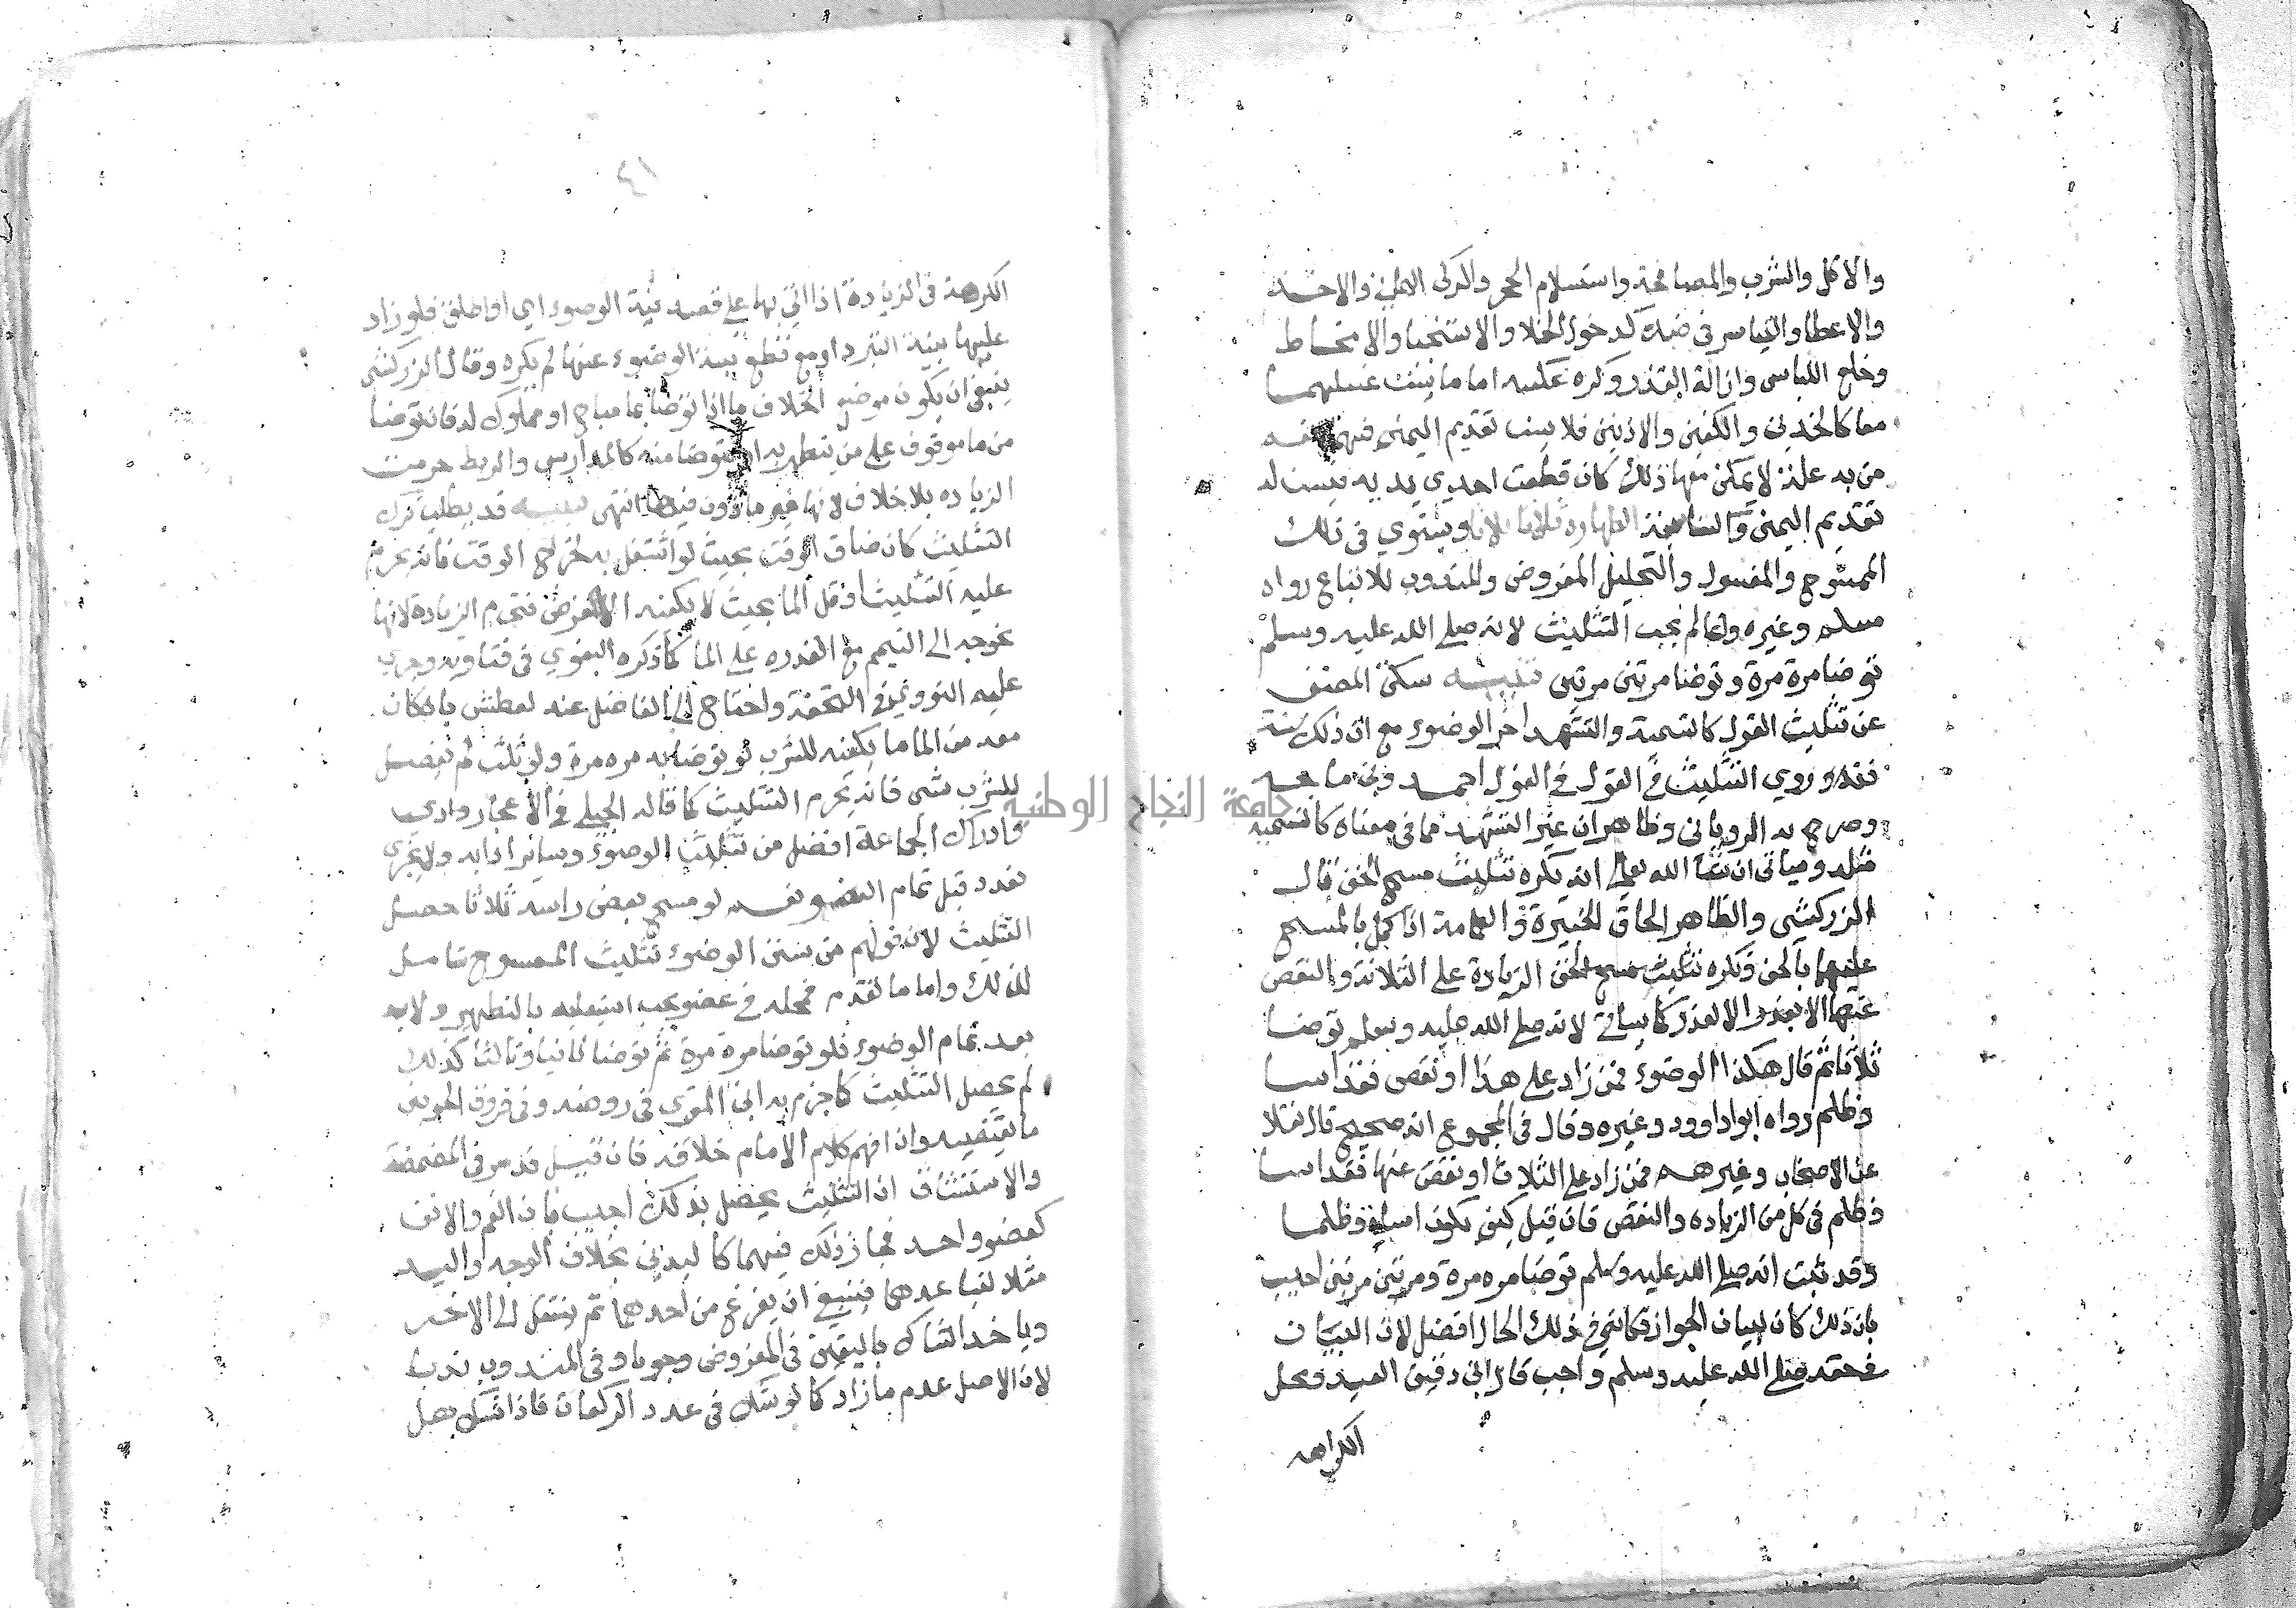 والاكل والشرب والمصافحة واستلام الحجر والركن اليماني والاخذ
والاعطا والتياسر في ضده كدخول الخلا والاستنجا والامتخاط
وخلع اللباس وازالة القذر وكره عكسه اما ما يسن غسلهما
معا كالخدين والكفين والاذنين فلا يسن تقديم اليمنى فيهما نعم
من به علة لا يمكن معها ذلك كان قطعت احدي يديه فيسن له
تقديم اليمنى والتاسعة الطهارة ثلاثا ثلاثا ويستوي في ذلك
الممسوح والمغسول والتخليل المفروض والمندوب للاتباع رواه
مسلم وغيره وانما لم يجب التثليث لانه صلى الله عليه وسلم
توضا مرة مرة وتوضا مرتين مرتين تنبيه سكت المصنف
عن تثليث القول كالتسمية والتشهد اخر الوضوء مع ان ذلك سنة
فقد روي التثليث في القول في القول احمد وبن ماجه
وصرح به الروياني وظاهر ان غير التشهد مما في معناه كالتسمية
مثله وسياتي ان شا الله تعالى انه يكره تثليث مسح الخف قال
الزركشي والظاهر الحاق الجبيرة والعمامة اذا كمل بالمسح
عليهما بالخف وتكره تثليث مسح الخف الزيادة على الثلاثة والنقص
عنها الا بعذر الا لعذر كما سياتي لانه صلى الله عليه وسلم توضا
ثلاثا ثم قال هكذا الوضوء فمن زاد على هذا او نقص فقد اسا
وظلم رواه ابوا داوود وغيره وقال في المجموع انه صحيح قال نقلا
عن الاصحاب وغيرهم فمن زاد على الثلاث او نقص عنها فقد اسا
وظلم في كل من الزياده والنقص فان قيل كيف يكون اساة وظلما
وقد ثبت انه صلى الله عليه وسلم توضا مره مرة ومرتين مرتين اجيب
بان ذلك كان لبيان الجواز فكان في ذلك الحال افضل لان البيان
في حقه صلى الله عليه وسلم واجب قال ابن دقيق العيد ومحل
الكراهه
٤١
الكرهة في الزيادة اذا اتي بها على قصد نية الوضوء اي او اطلق فلو زاد
عليها بنية التبرد او مع قطع نية الوضوء عنها لم يكره وقال الزركشي
ينبغي ان يكون موضع الخلاف ما اذا توضا بما مباح او مملوك له فان توضا
من ما موقوف على من يتطهر به او يتوضا منه كالمدارس والربط حرمت
الزياده بلا خلاف لانها غير ماذون فيها انتهى تنبيه قد يطلب ترك
التثليث كان ضاق الوقت بحيث لو اشتغل به لخرج الوقت فانه يحرم
عليه التثليث او قل الما بحيث لا يكفيه الا للفرض فتحرم الزيادة لانها
تحوجه الى التيمم مع القدره على الما كما ذكره البغوي في فتاويه وجري
عليه النووي في التحفة واحتاج الى الفاضل عنه لعطش بان كان
معه من الما ما يكفيه للشرب لو توضا به مره مرة ولو ثلث لم يفضل
للشرب شي فانه يحرم التثليث كما قاله الجيلي في الاعجاز وادي
وادراك الجماعة افضل من تثليث الوضوء وسائر ادابه ولا يجزي
تعدد قبل تمام العضو نعم لو مسح بعض راسه ثلاثا حصل
التثليث لان قولهم من سنن الوضوء تثليث الممسوح شامل
لذلك واما ما تقدم فمحله في عضو يجب استيعابه بالتطهير ولا بد
بعد تمام الوضوء فلو توضا مرة مرة ثم توضا ثانيا وثالثا كذلك
لم يحصل التثليث كما جزم به ابن المقري في روضه وفي فروق الجويني
ما يقتضيه وان افهم كلام الامام خلافه فان قيل قد مر في المضمضة
والاستنشاق ان التثليث يحصل بذلك اجيب بان الفم والانف
كعضو واحد فجاز ذلك فيهما كاليدين بخلاف الوجه واليد
مثلا لتباعدهما فينبغي ان يفرغ من احدهما ثم ينتقل الى الاخر
وياخد الشاك باليقين في المفروض وجوبا وفي المندوب ندبا
لان الاصل عدم ما زاد كما لو شك في عدد الركعات فاذا شك هل
جامعة النجاح الوطنية